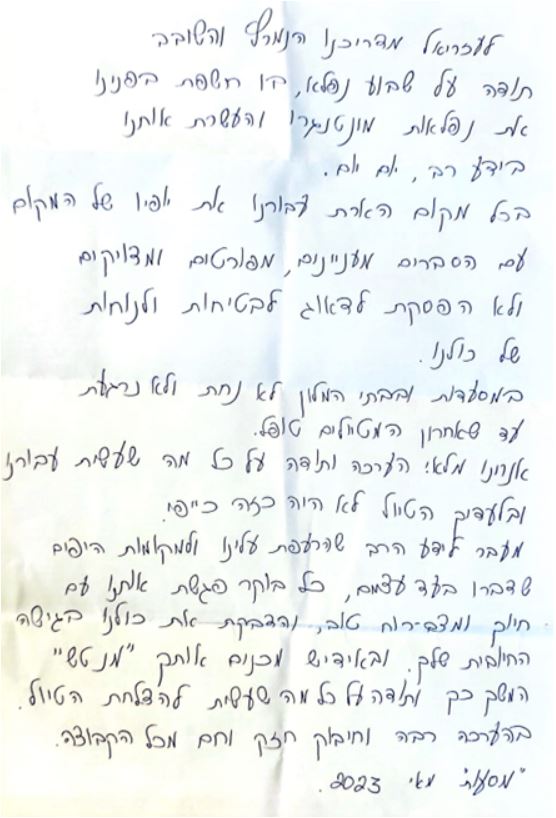 לעזריאל מדריכנו הנמרץ והשובב
תודה על שבוע נפלא, בו חשפת בפנינו
את נפלאות מונטנגרו והעשרת אותנו
בידע רב, יום יום.
בכל מקום הארת עבורנו את יופיו של המקום
עם הסברים מעניינים, מפורטים ומדויקים
ולא הפסקת לדאוג לבטיחות ולנוחות
של כולנו.
במסעדות ובבתי המלון לא נחת ולא נרגעת
עד שאחרון המטיילים טופל.
אנחנו מלאי הערכה ותודה על כל מה שעשית עבורנו
ובלעדיך הטיול לא היה כזה כייפי.
מעבר לידע הרב שהרעפת עלינו ולמקומות היפים
שדברו בעד עצמם, כל בוקר פגשת אותנו עם
חיוך ומצב-רוח טוב, והדבקת את כולנו בגישה
החיובית שלך. ובאידיש מכנים אותך "מנטש"
המשך כך ותודה על כל מה שעשית להצלחת הטיול.
בהערכה רבה וחיבוק חזק וחם מכל הקבוצה.
"מסעות" מאי 2023.